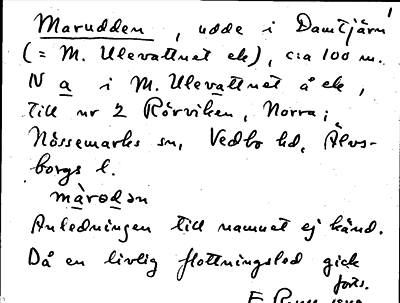 1
Marudden, udde i Damtjärn
(= M. Ulevattnet ek), c:a 100 m.
N a i M. Ulevattnet å ek,
till nr 2 Rörviken, Norra;
Nössemarks sn, Vedbo hd, Älvs-
borgs l.
màrɷdən
Anledningen till namnet ej känd.
Då en livlig flottningsled gick
forts.